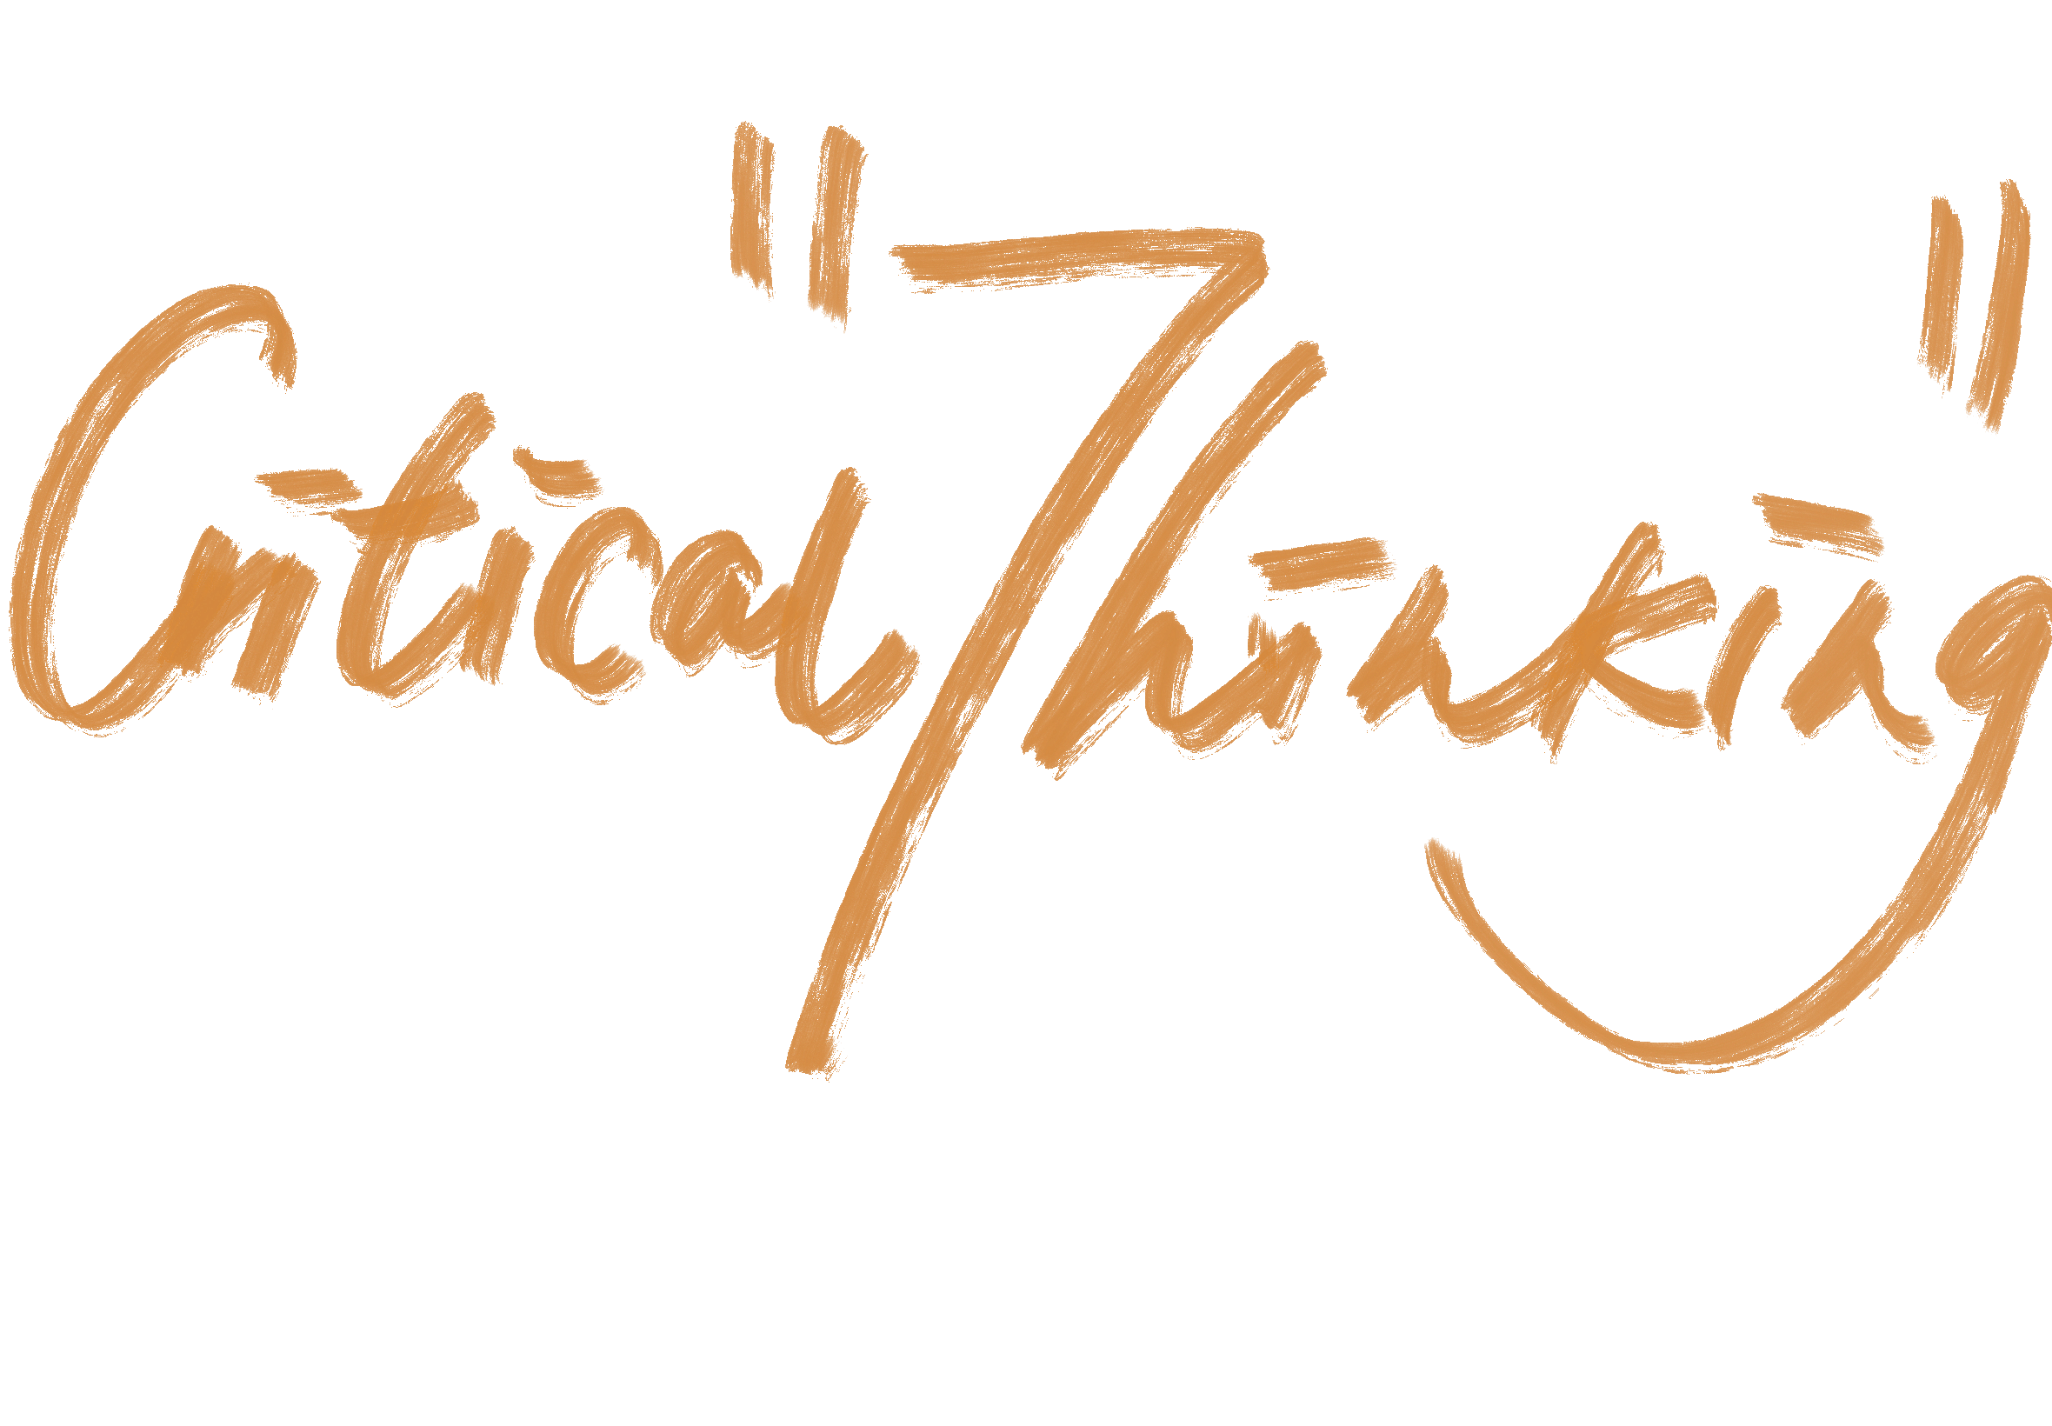 Critical "Thinking"